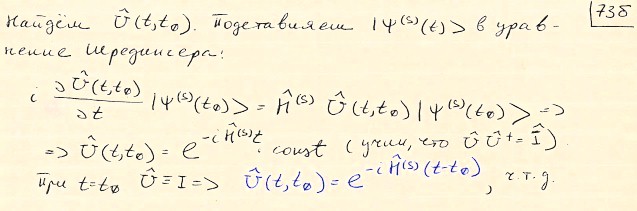 Найдём Û(t,t₀). Подставляем |Ψ⁽ˢ⁾(t)> в урав- 73б
нение Шредингера:
i ∂Û(t,t₀)/∂t |Ψ⁽ˢ⁾(t₀)> = Ĥ⁽ˢ⁾ Û(t,t₀)|Ψ⁽ˢ⁾(t₀)> =>
=> Û(t,t₀) = e^{-iĤ⁽ˢ⁾t}·const (учли, что Û Û⁺ = Î).
При t=t₀ Û ≡ I => Û(t,t₀) = e^{-iĤ⁽ˢ⁾(t-t₀)}, ч.т.д.